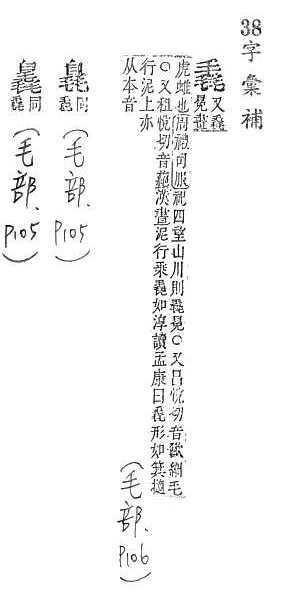 38字彙補
毳
虎蜼也周禮司服祀四望山川則毳冕○又呂悅切音 細毛
○又租悅切音蕝漢書泥行乘毳如淳讀孟康曰毳形如箕擿
行泥上亦
从本音
(毛部、P106)
同毳
(毛部、P105)
同毳
(毛部、P105)